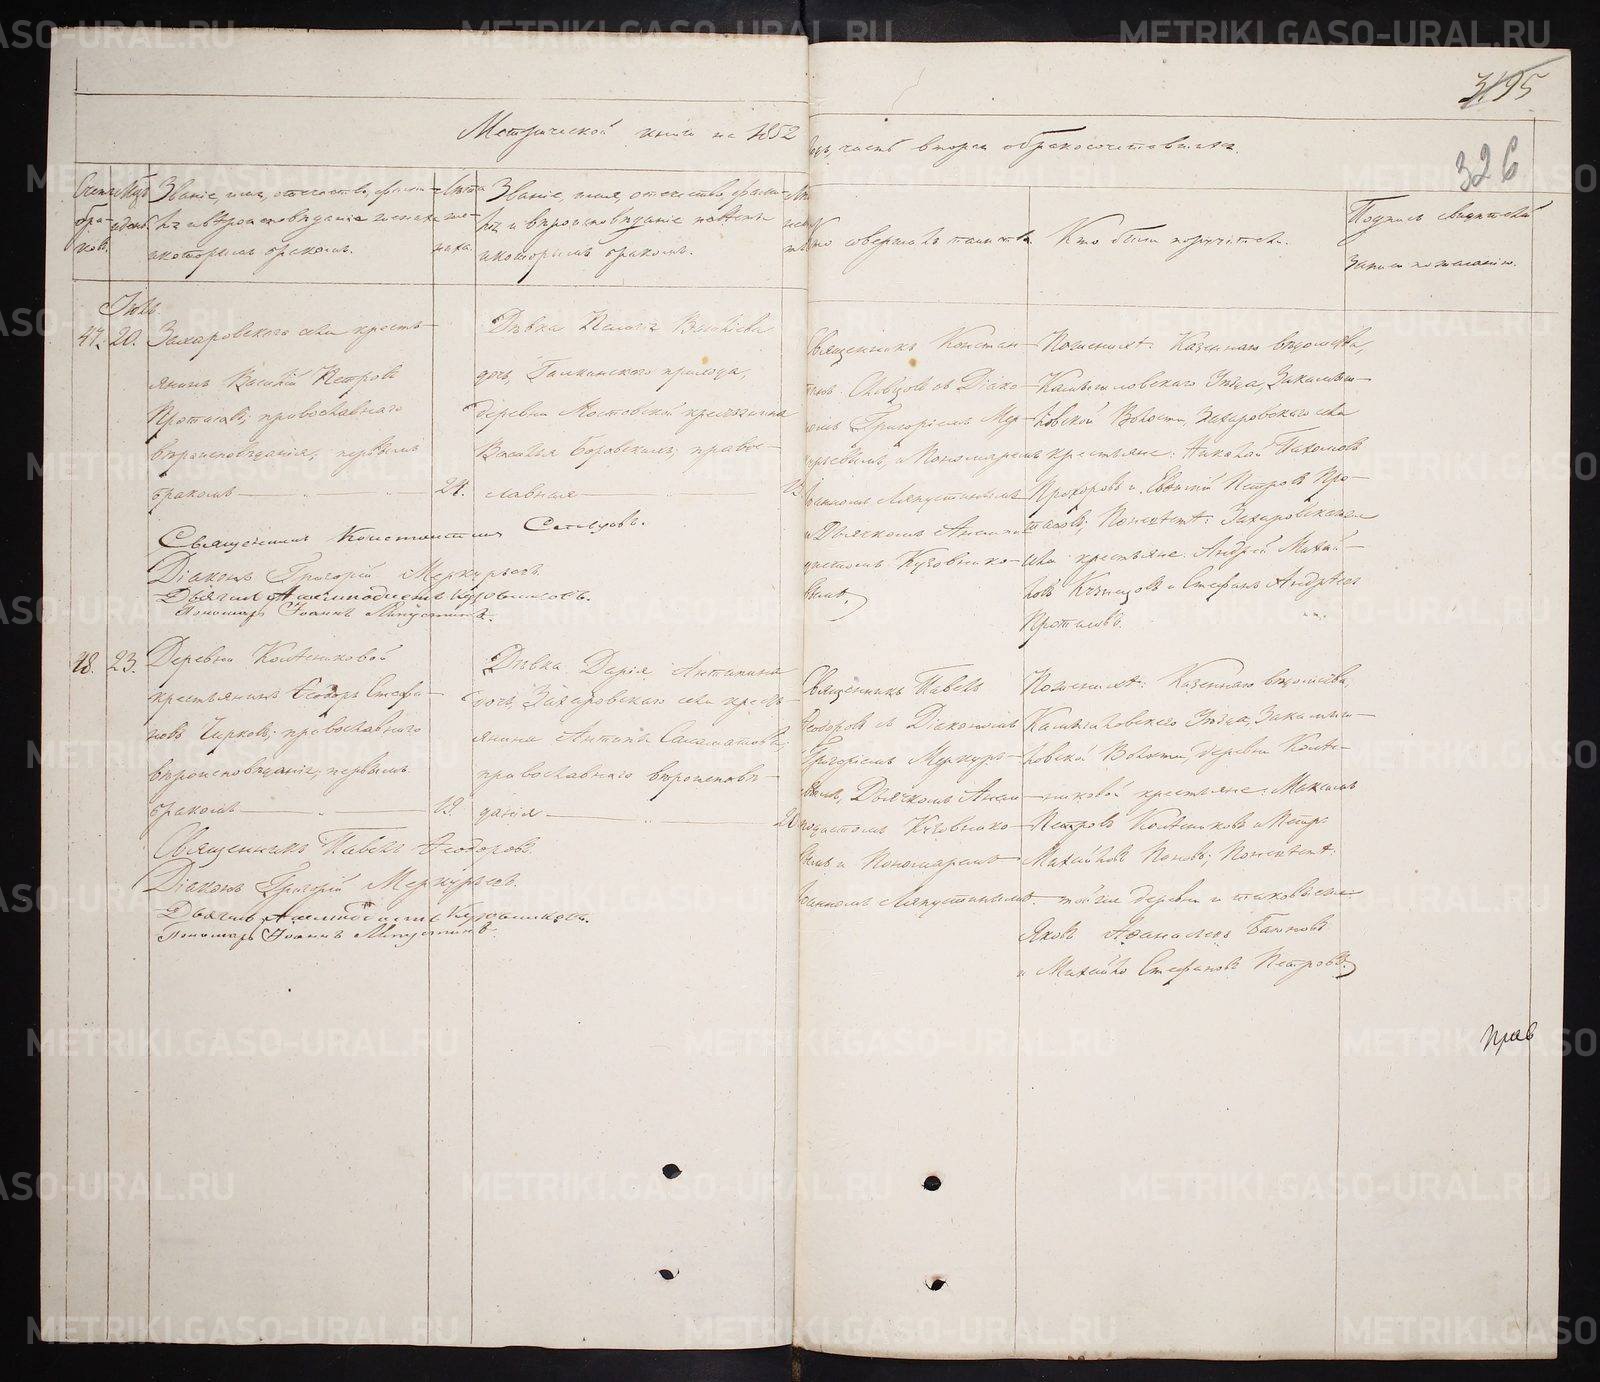 METRIKI.GASO-URAL.RU
3195
326
Метрической книги на 1852
годъ, часть вторая о бракосочетавшихся.
Счетъ браковъ.
Мѣсяцъ и день.
Званіе, имя, отечество, фамилія
и вѣроисповѣданіе жениха
и которымъ бракомъ.
Лѣта жениха.
Званіе, имя, отечество, фамилія
и вѣроисповѣданіе невѣсты
и которымъ бракомъ.
Кто совершалъ таинство.
Кто были поручители.
Подпись свидѣтелей
записи по желанію.
47. 20.
Захаровскаго села кресть-
янинъ Василій Петровъ
Протасовъ, православнаго
вѣроисповѣданія, первымъ
бракомъ 24.
Дѣвка Пелагія Васильева
дочь, Галкинскаго прихода,
деревни Мостовской крестьянина
Василья Боровскихъ; правос-
лавная
Священникъ Констан-
тинъ Словцовъ съ Діако-
номъ Григоріемъ Мер-
курьевымъ, и Пономаремъ
Іоанномъ Ляпустинымъ
Кузовнико-
вымъ.
По женихѣ: Казеннаго вѣдомства,
Камышловскаго Уѣзда, Закамыш-
ловской Волости, Захаровскаго села
крестьяне: Николай Пахомовъ
Прохоровъ и Евѳимій Петровъ Про-
тасовъ; По невѣстѣ: Захаровскаго
села крестьяне: Андрей Михай-
ловъ Кузнецовъ и Стефанъ Андреевъ
Протасовъ.
Священникъ Константинъ Словцовъ.
Діаконъ Григорій Меркурьевъ.
Дьячекъ Кузовниковъ.
Пономарь Іоаннъ Ляпустинъ.
48. 23.
Деревни Колясниковой
крестьянинъ Ѳеодоръ Стефа-
новъ Чирковъ; православнаго
вѣроисповѣданія, первымъ
бракомъ
Дѣвка Дарія Антипина
дочь, Захаровскаго села кресть-
янина Антипы Саламатова;
православнаго вѣроисповѣ-
данія
Священникъ Павелъ
Ѳеодоровъ съ Діакономъ
Григоріемъ Меркурь-
евымъ, Дьячкомъ
Кузовнико-
вымъ и Пономаремъ
Іоанномъ Ляпустинымъ.
По женихѣ: Казеннаго вѣдомства,
Камышловскаго Уѣзда, Закамыш-
ловской Волости, деревни Коляс-
никовой крестьяне: Максимъ
Петровъ Колясниковъ и Петръ
Михайловъ Поповъ; По невѣстѣ:
той же деревни и таковые же
Яковъ Аѳанасьевъ
и Михайло Стефановъ Петровъ.
Священникъ Павелъ Ѳеодоровъ.
Діаконъ Григорій Меркурьевъ.
Дьячекъ Кузовниковъ.
Пономарь Іоаннъ Ляпустинъ